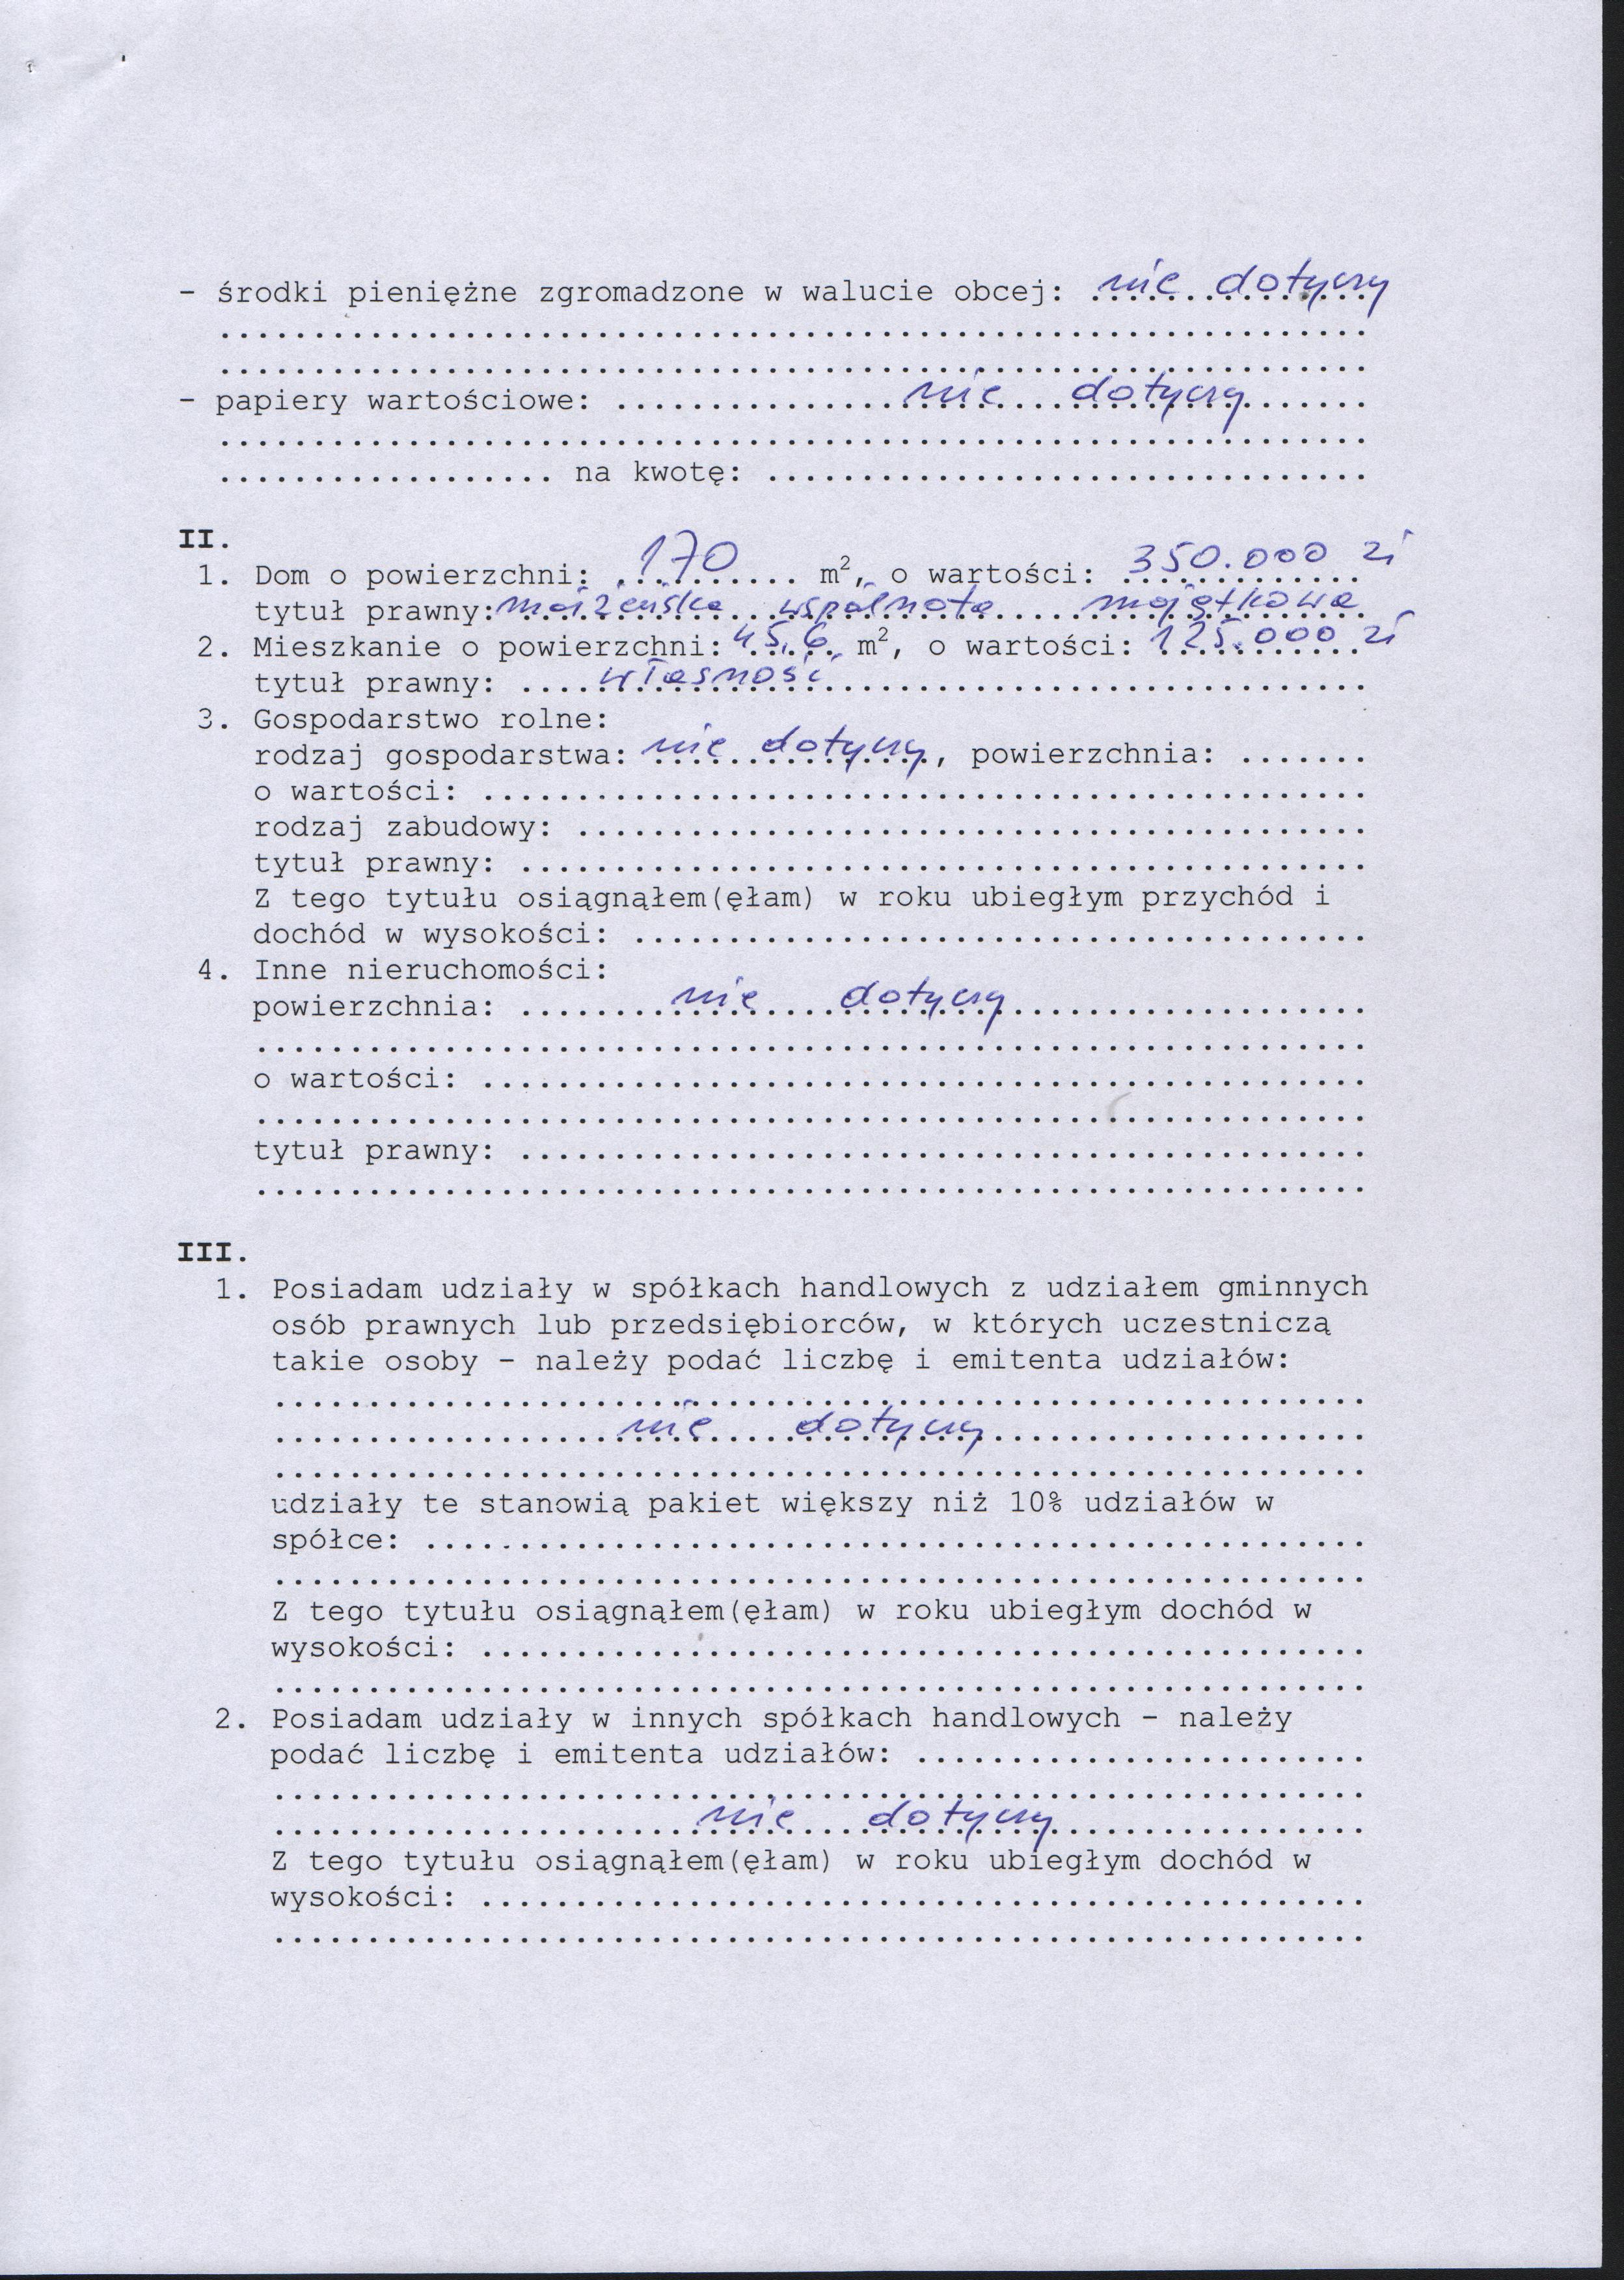 - środki pieniężne zgromadzone w walucie obcej: nie dotyczy
..............................................................
..............................................................
- papiery wartościowe: ...............nie....dotyczy.......
..............................................................
.................. na kwotę: ................................
II.
1. Dom o powierzchni: 170 m², o wartości: 350.000 zł
tytuł prawny: małżeńska wspólnota majątkowa
2. Mieszkanie o powierzchni: 45,6 m², o wartości: 125.000 zł
tytuł prawny: ....własność.............................
3. Gospodarstwo rolne:
rodzaj gospodarstwa: nie dotyczy, powierzchnia: .......
o wartości: ...............................................
rodzaj zabudowy: ..........................................
tytuł prawny: .............................................
Z tego tytułu osiągnąłem(ęłam) w roku ubiegłym przychód i
dochód w wysokości: .......................................
4. Inne nieruchomości:
powierzchnia: ........nie....dotyczy...................
...........................................................
o wartości: ...............................................
...........................................................
tytuł prawny: .............................................
...........................................................
III.
1. Posiadam udziały w spółkach handlowych z udziałem gminnych
osób prawnych lub przedsiębiorców, w których uczestniczą
takie osoby - należy podać liczbę i emitenta udziałów:
..........................................................
..................nie.....dotyczy....................
..........................................................
udziały te stanowią pakiet większy niż 10% udziałów w
spółce: ..................................................
..........................................................
Z tego tytułu osiągnąłem(ęłam) w roku ubiegłym dochód w
wysokości: ...............................................
..........................................................
2. Posiadam udziały w innych spółkach handlowych - należy
podać liczbę i emitenta udziałów: ........................
..........................................................
......................nie....dotyczy.................
Z tego tytułu osiągnąłem(ęłam) w roku ubiegłym dochód w
wysokości: ...............................................
..........................................................